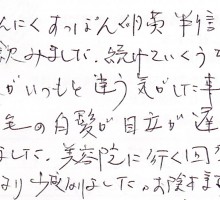 んにくすっぽん卵黄 半信
飲みました。続けていくうち
がいつもと違う気がした事
毛の白髪が目立が遅
ました。美容院に行く回
なりました。お陰さま